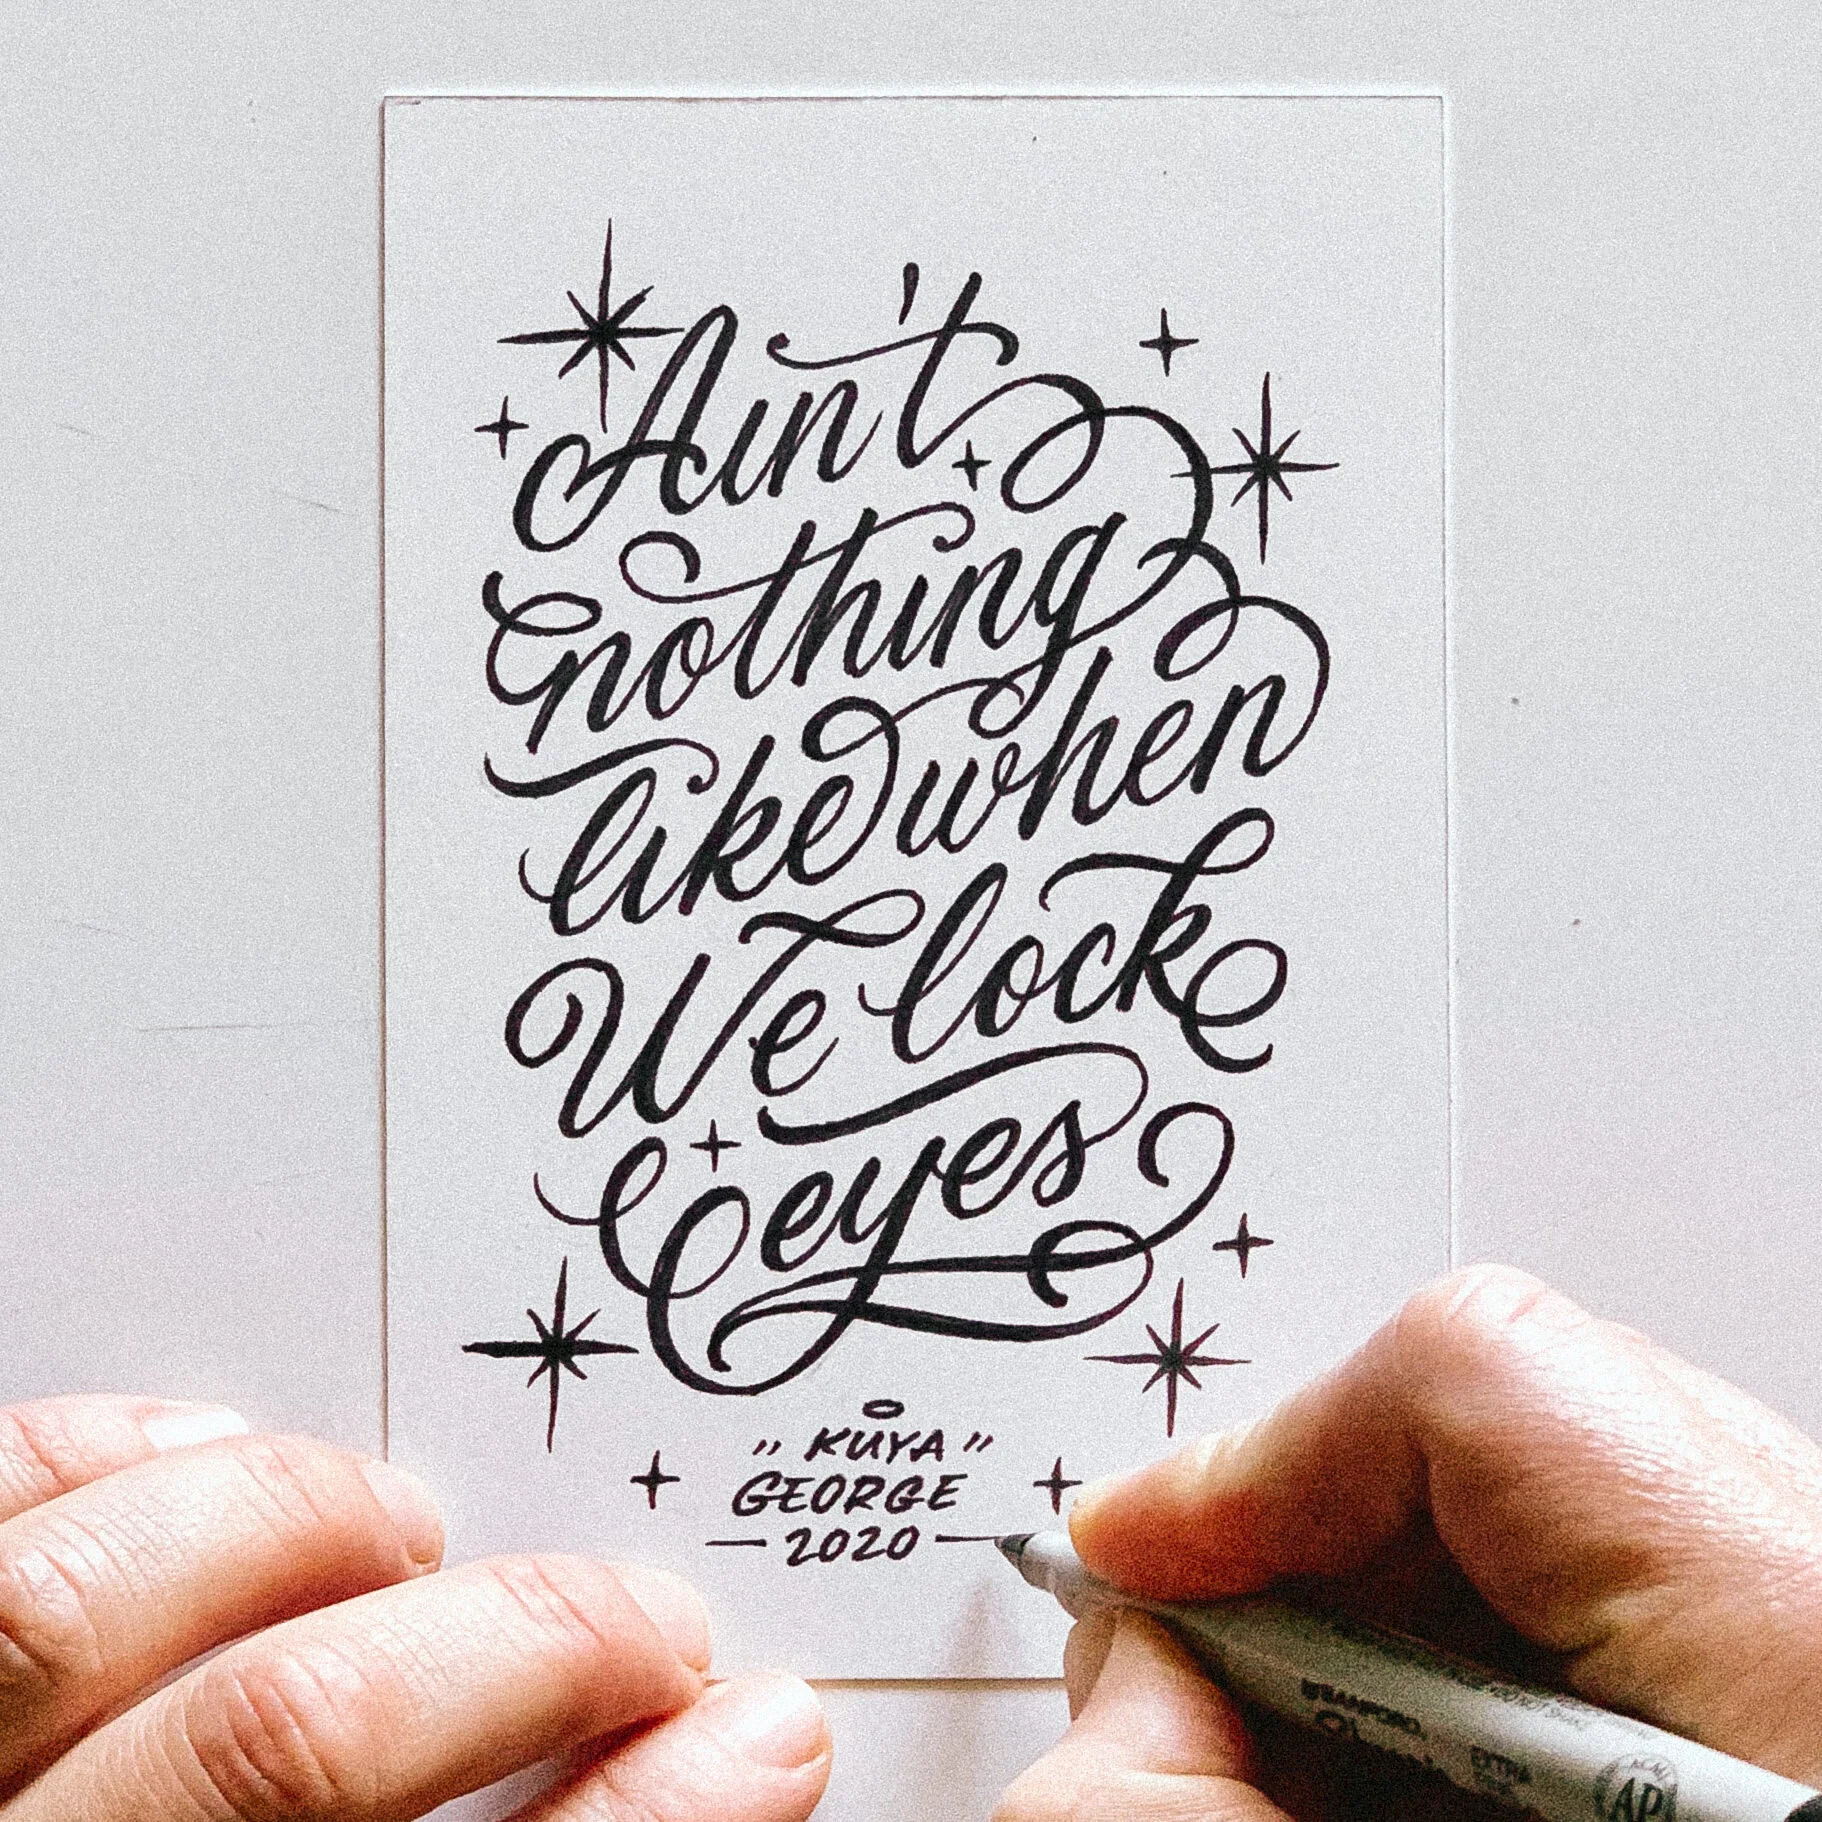 Ain't
nothing
like when
We lock
eyes
"KUYA"
GEORGE
— 2020 —
SANFORD
EXTRA
AP